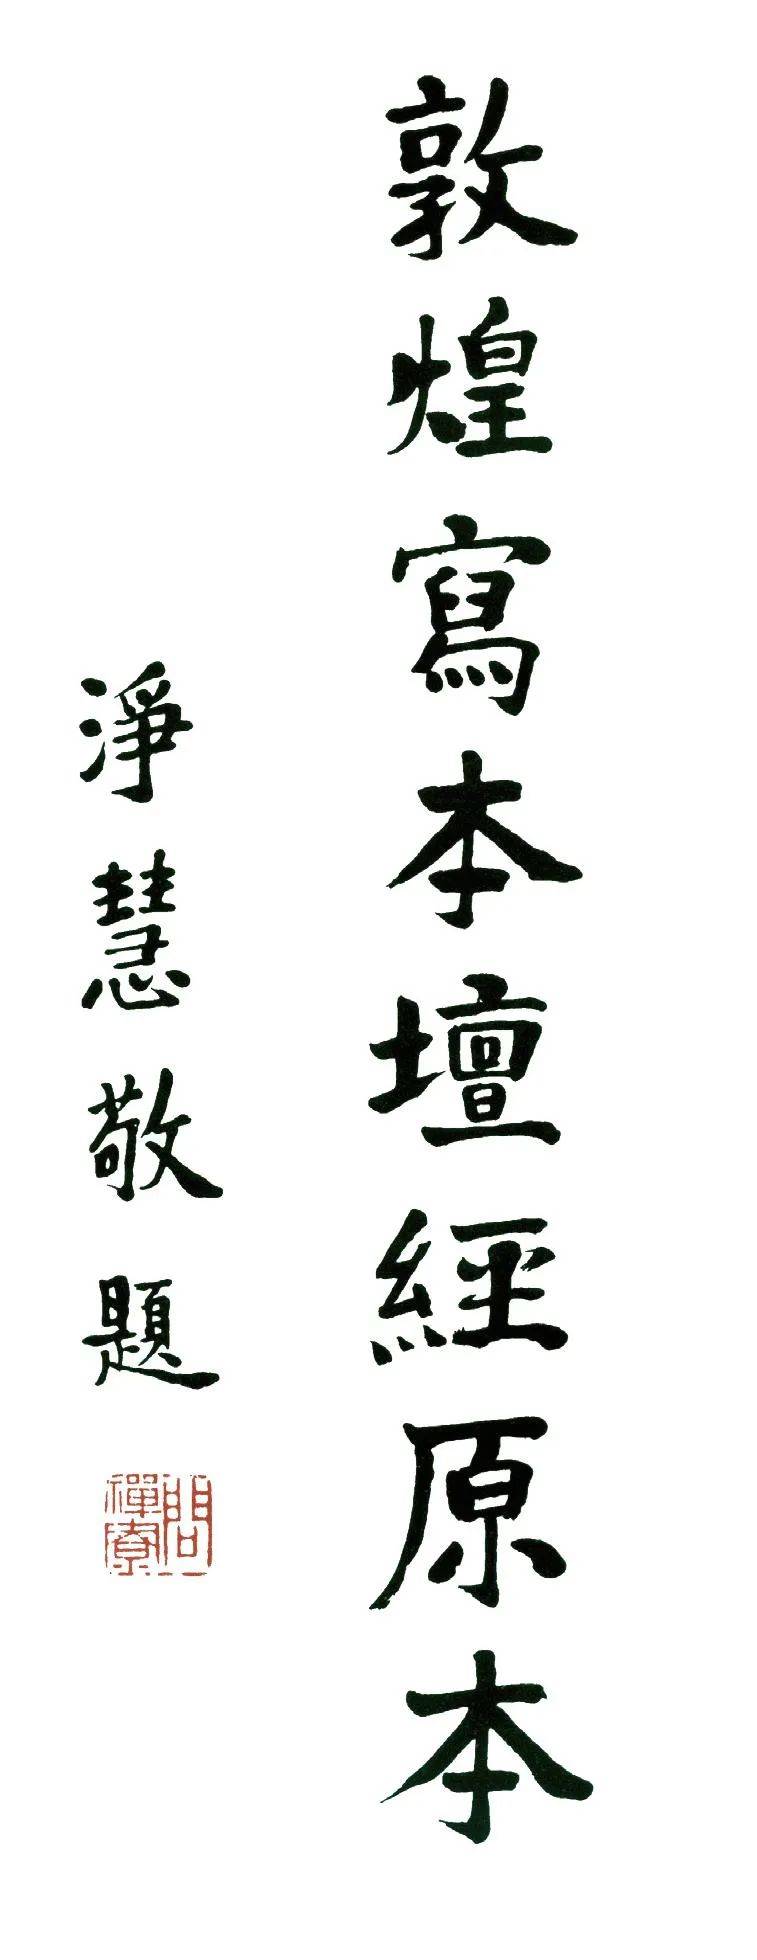 敦煌寫本壇經原本
淨慧敬題
問禪寮